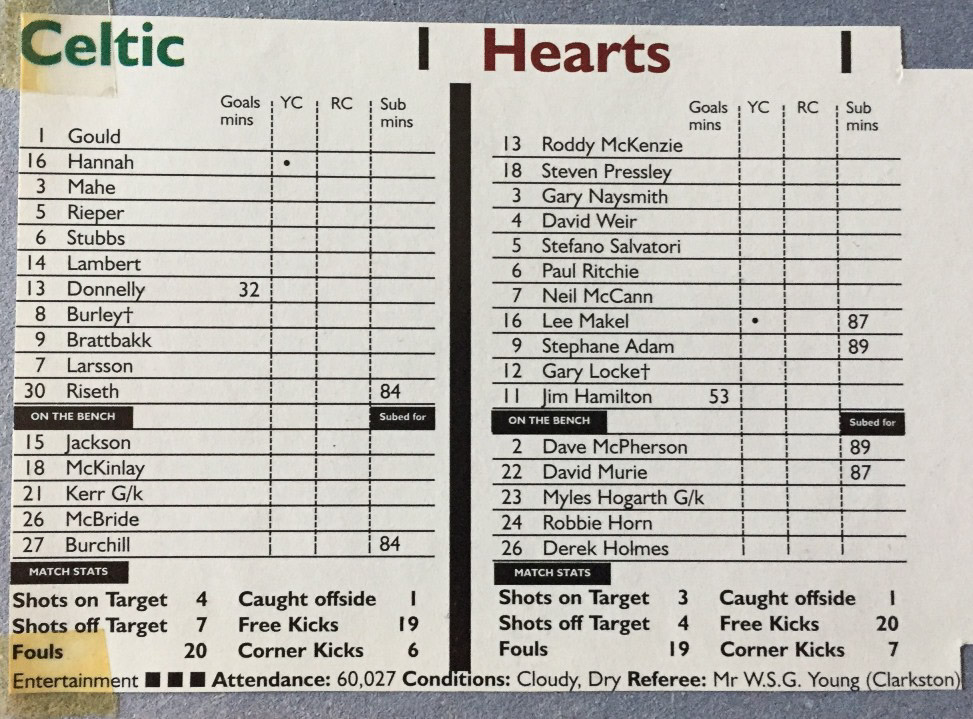 Celtic 1
Goals mins YC RC Sub mins
1 Gould
16 Hannah •
3 Mahe
5 Rieper
6 Stubbs
14 Lambert
13 Donnelly 32
8 Burley†
9 Brattbakk
7 Larsson
30 Riseth 84
ON THE BENCH Subed for
15 Jackson
18 McKinlay
21 Kerr G/k
26 McBride
27 Burchill 84
MATCH STATS
Shots on Target 4 Caught offside 1
Shots off Target 7 Free Kicks 19
Fouls 20 Corner Kicks 6
Hearts 1
Goals mins YC RC Sub mins
13 Roddy McKenzie
18 Steven Pressley
3 Gary Naysmith
4 David Weir
5 Stefano Salvatori
6 Paul Ritchie
7 Neil McCann
16 Lee Makel • 87
9 Stephane Adam 89
12 Gary Locke†
11 Jim Hamilton 53
ON THE BENCH Subed for
2 Dave McPherson 89
22 David Murie 87
23 Myles Hogarth G/k
24 Robbie Horn
26 Derek Holmes
MATCH STATS
Shots on Target 3 Caught offside 1
Shots off Target 4 Free Kicks 20
Fouls 19 Corner Kicks 7
Entertainment ■ ■ ■ Attendance: 60,027 Conditions: Cloudy, Dry Referee: Mr W.S.G. Young (Clarkston)